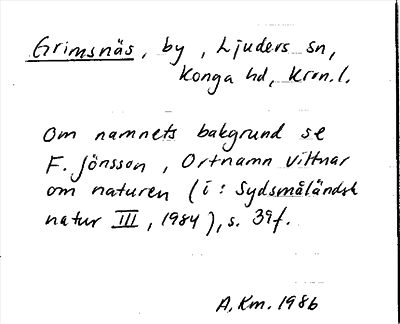 Grimsnäs, by, Ljuders sn,
Konga hd, Kron. l.
Om namnets bakgrund se
F. Jönsson, Ortnamn vittnar
om naturen (i: Sydsmåländsk
natur III, 1984), s. 39f.
A. Km. 1986